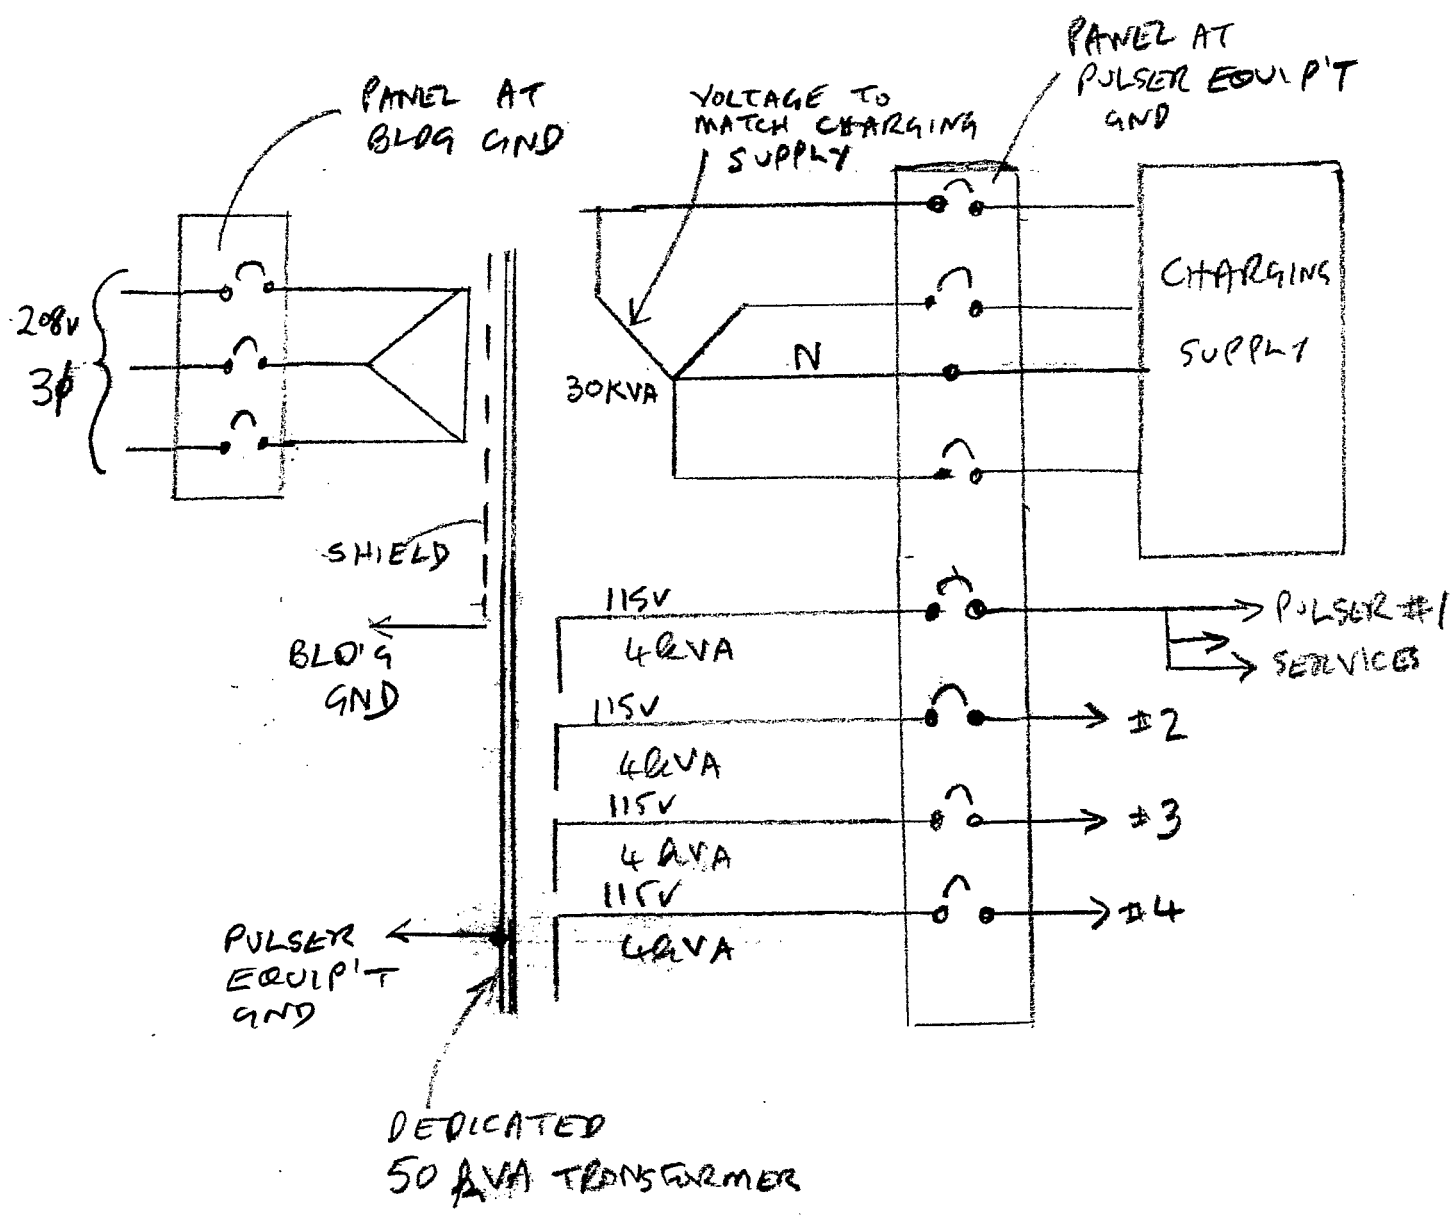 PANEL AT
BLDG GND
VOLTAGE TO
MATCH CHARGING
SUPPLY
PANEL AT
PULSER EQUIP'T
GND
208V
3ϕ
30KVA
N
CHARGING
SUPPLY
SHIELD
BLD'G
GND
115V
4kVA
PULSER #1
SERVICES
115V
4kVA
#2
115V
4kVA
#3
115V
4kVA
#4
PULSER
EQUIP'T
GND
DEDICATED
50 kVA TRANSFORMER